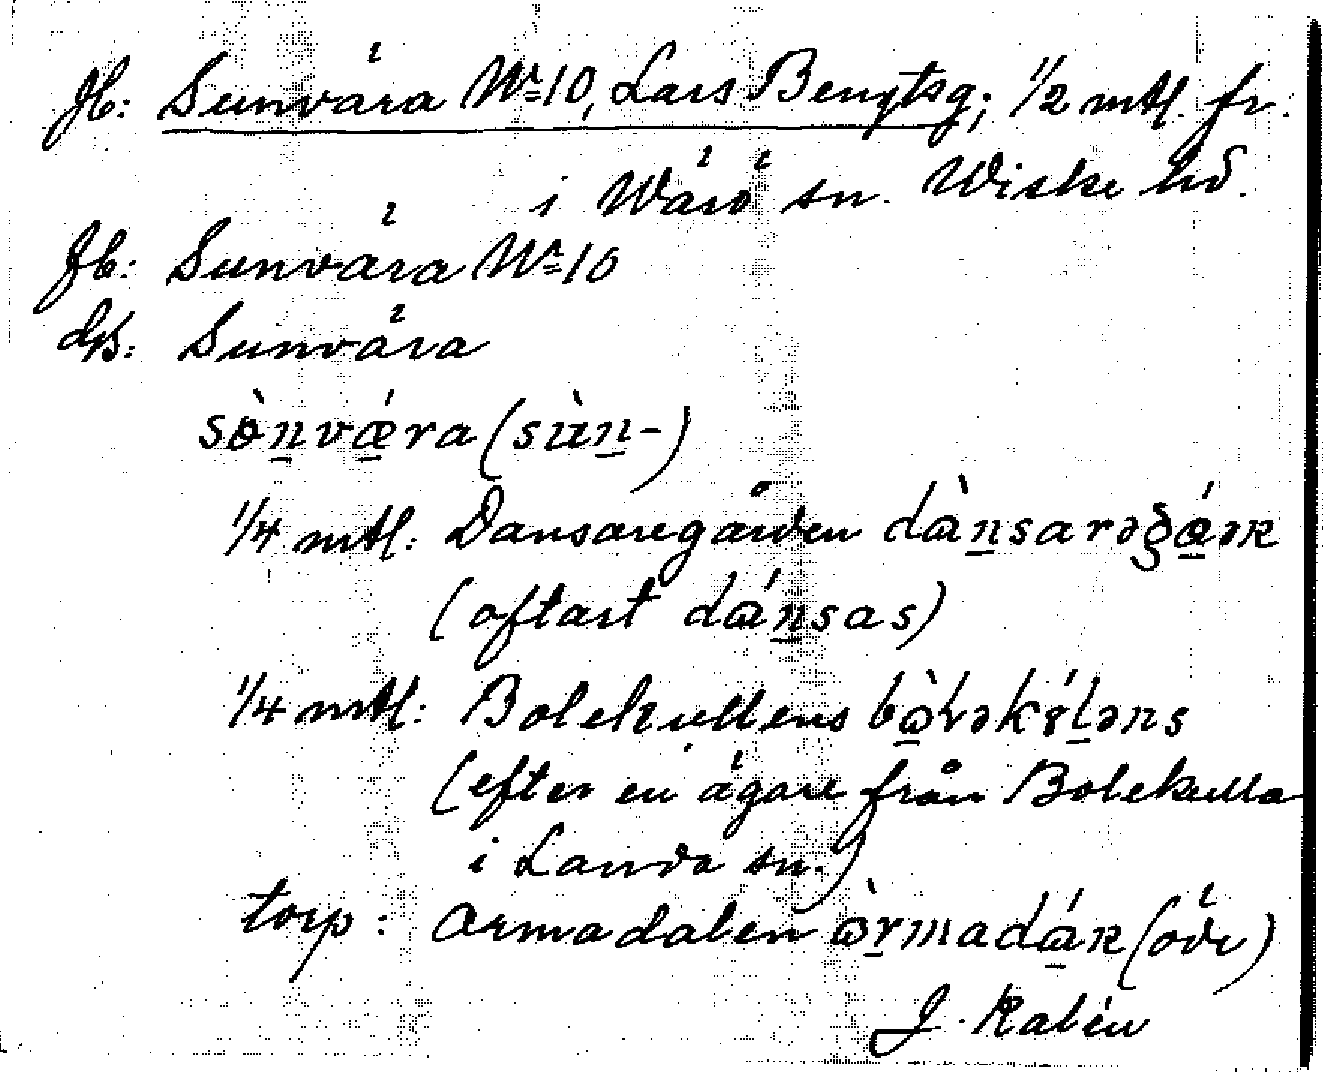 Jb: Sunvära Nr 10, Lars Bengtsg; 1/2 mtl. fr.
i Wärö sn. Wiske hd.
Jb: Sunvära Nr 10
GK: Sunvära
sònvǽra (sùn-)
1/4 mtl: Dansaregården dànsarəgǽɹəʀ
(oftast dánsas)
1/4 mtl: Bolekullens
(efter en ägare från Bolekulla
i Landa sn.)
torp: Armadalen (öde)
J. Kalén